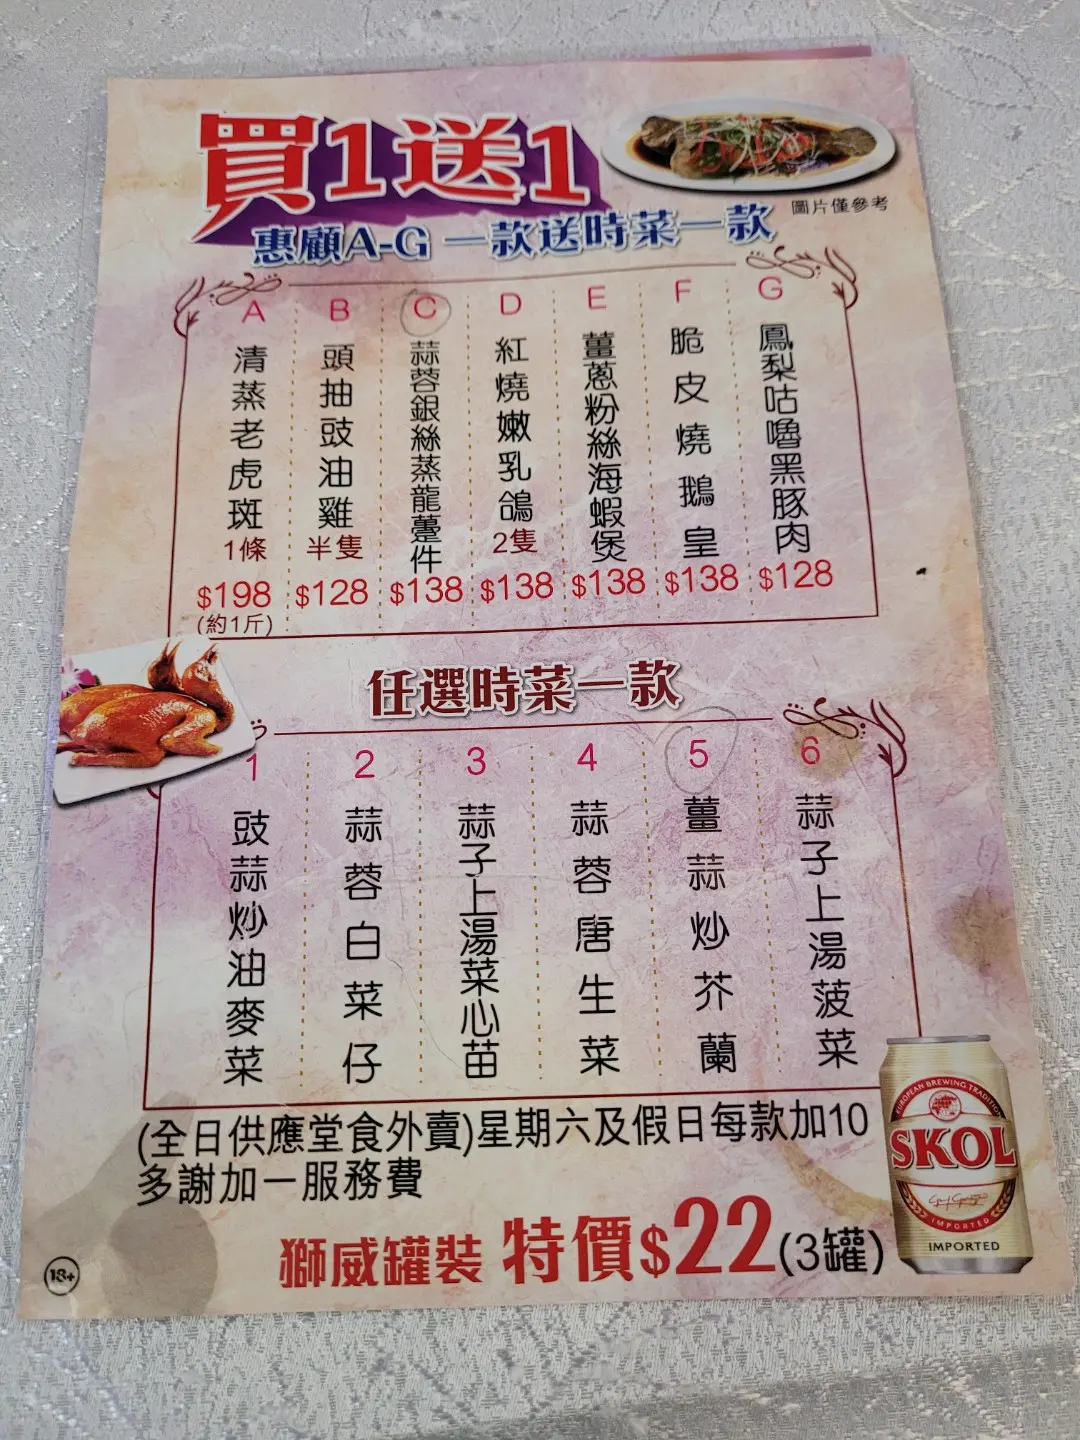 買1送1
圖片僅參考
惠顧A-G 一款送時菜一款
A
清蒸老虎斑
1條
$198
(約1斤)
B
頭抽豉油雞
半隻
$128
C
蒜蓉銀絲蒸龍躉件
$138
D
紅燒嫩乳鴿
2隻
$138
E
薑蔥粉絲海蝦煲
$138
F
脆皮燒鵝皇
$138
G
鳳梨咕嚕黑豚肉
$128
任選時菜一款
1
豉蒜炒油麥菜
2
蒜蓉白菜仔
3
蒜子上湯菜心苗
4
蒜蓉唐生菜
5
薑蒜炒芥蘭
6
蒜子上湯菠菜
(全日供應堂食外賣)星期六及假日每款加10
多謝加一服務費
獅威罐裝 特價$22(3罐)
18+
EUROPEAN BREWING TRADITION
SKOL
IMPORTED
IMPORTED